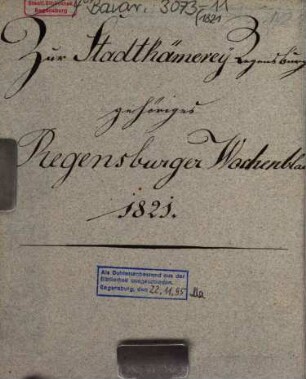 Staatl. Bibliothek
Regensburg
Bavar. 3073-11
1821
Zur Stadtkämerey Regensburg
gehöriges
Regensburger Wochenblatt
1821.
Als Dublettenbestand aus der
Bibliothek ausgeschieden.
Regensburg, den 22.11.95